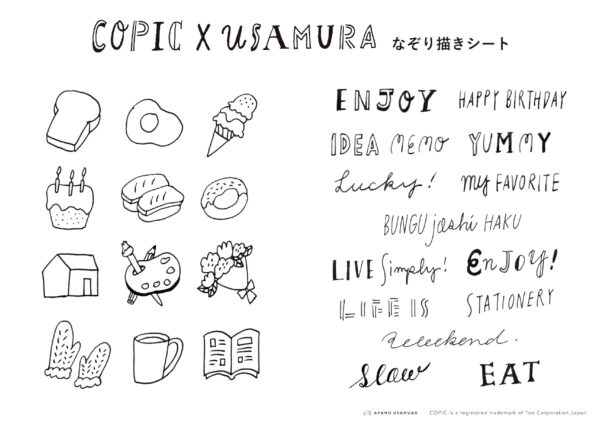 COPIC X USAMURA なぞり描きシート
ENJOY HAPPY BIRTHDAY
IDEA MEMO YUMMY
Lucky! my FAVORITE
BUNGU joshi HAKU
LIVE Simply! EnJOY!
LIFE IS STATIONERY
Weekend.
Slow EAT
AYANO USAMURA COPIC is a registered trademark of Too Corporation, Japan.